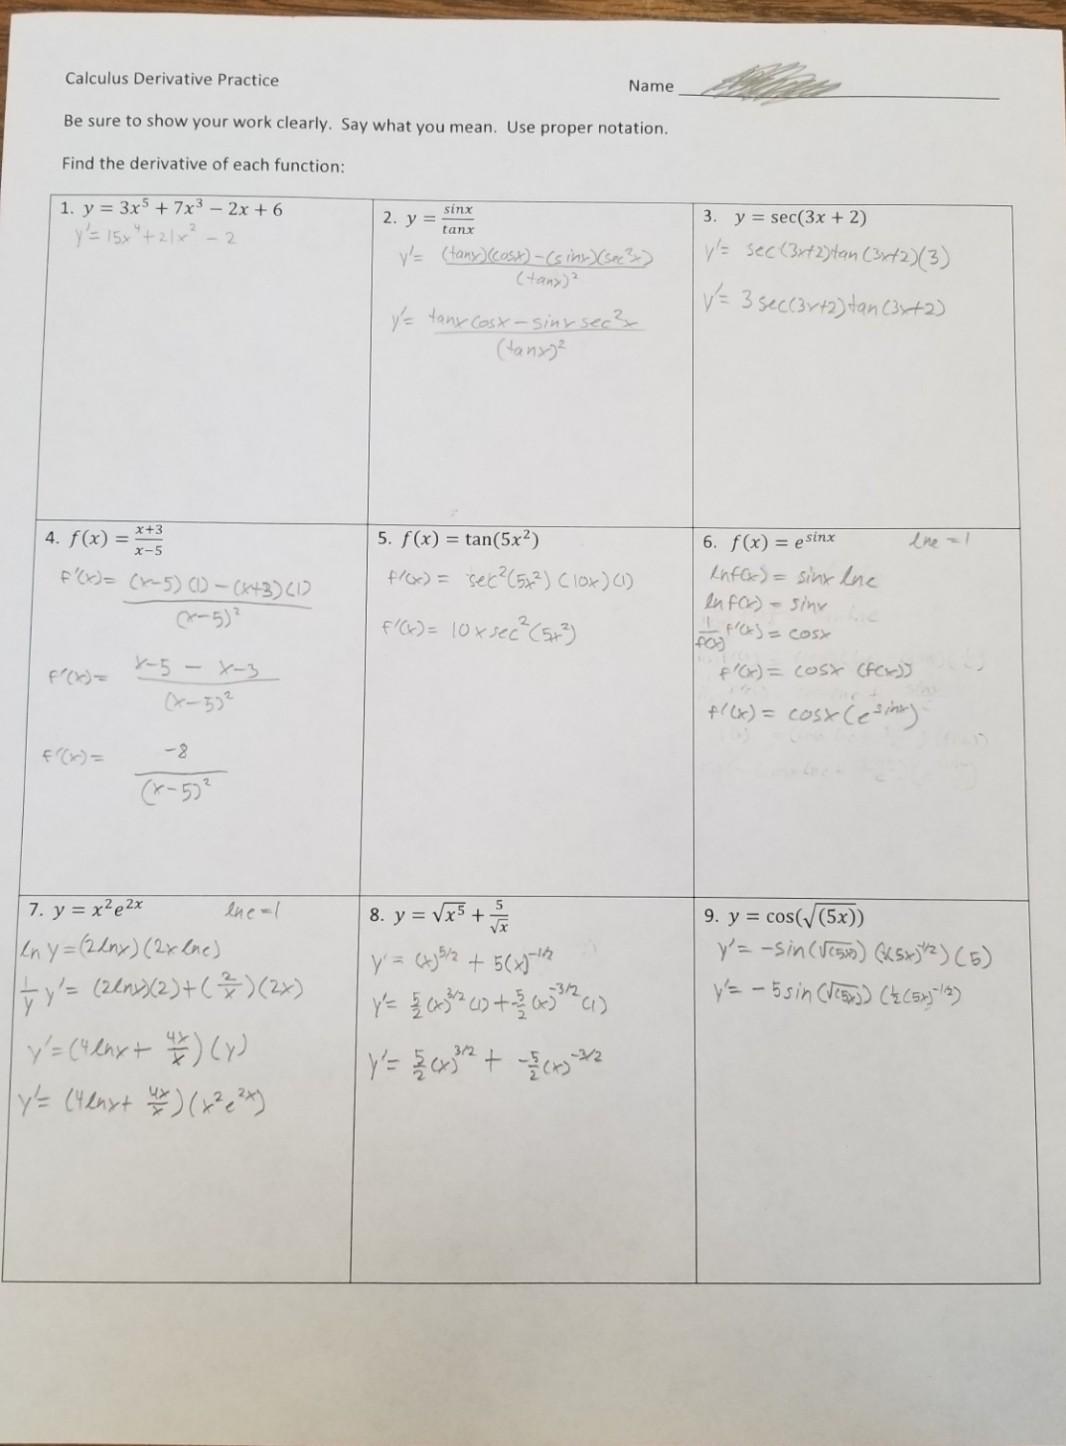 Calculus Derivative Practice
Name
Be sure to show your work clearly. Say what you mean. Use proper notation.
Find the derivative of each function:
1. y = 3x⁵ + 7x³ − 2x + 6
y' = 15x⁴ + 21x² − 2
2. y = sinx/tanx
y' = (tanx)(cosx) − (sinx)(sec²x) / (tanx)²
y' = tanx cosx − sinx sec²x / (tanx)²
3. y = sec(3x + 2)
y' = sec(3x+2)tan(3x+2)(3)
y' = 3sec(3x+2)tan(3x+2)
4. f(x) = x+3/x−5
f'(x) = (x−5)(1) − (x+3)(1) / (x−5)²
f'(x) = x−5 − x−3 / (x−5)²
f'(x) = −8 / (x−5)²
5. f(x) = tan(5x²)
f'(x) = sec²(5x²)(10x)(1)
f'(x) = 10xsec²(5x²)
6. f(x) = e^sinx lne = 1
lnf(x) = sinx lne
lnf(x) = sinx
1/f(x) f'(x) = cosx
f'(x) = cosx (f(x))
f'(x) = cosx(e^sinx)
7. y = x²e²ˣ lne = 1
ln y = (2lnx)(2x lne)
1/y y' = (2lnx)(2) + (2/x)(2x)
y' = (4lnx + 4x/x)(y)
y' = (4lnx + 4x/x)(x²e²ˣ)
8. y = √x⁵ + 5/√x
y' = (x)^5/2 + 5(x)^−1/2
y' = 5/2(x)^3/2(1) + −5/2(x)^−3/2(1)
y' = 5/2(x)^3/2 + −5/2(x)^−3/2
9. y = cos(√(5x))
y' = −sin(√(5x)) (½(5x)^−1/2)(5)
y' = −5sin(√(5x)) (½(5x)^−1/2)